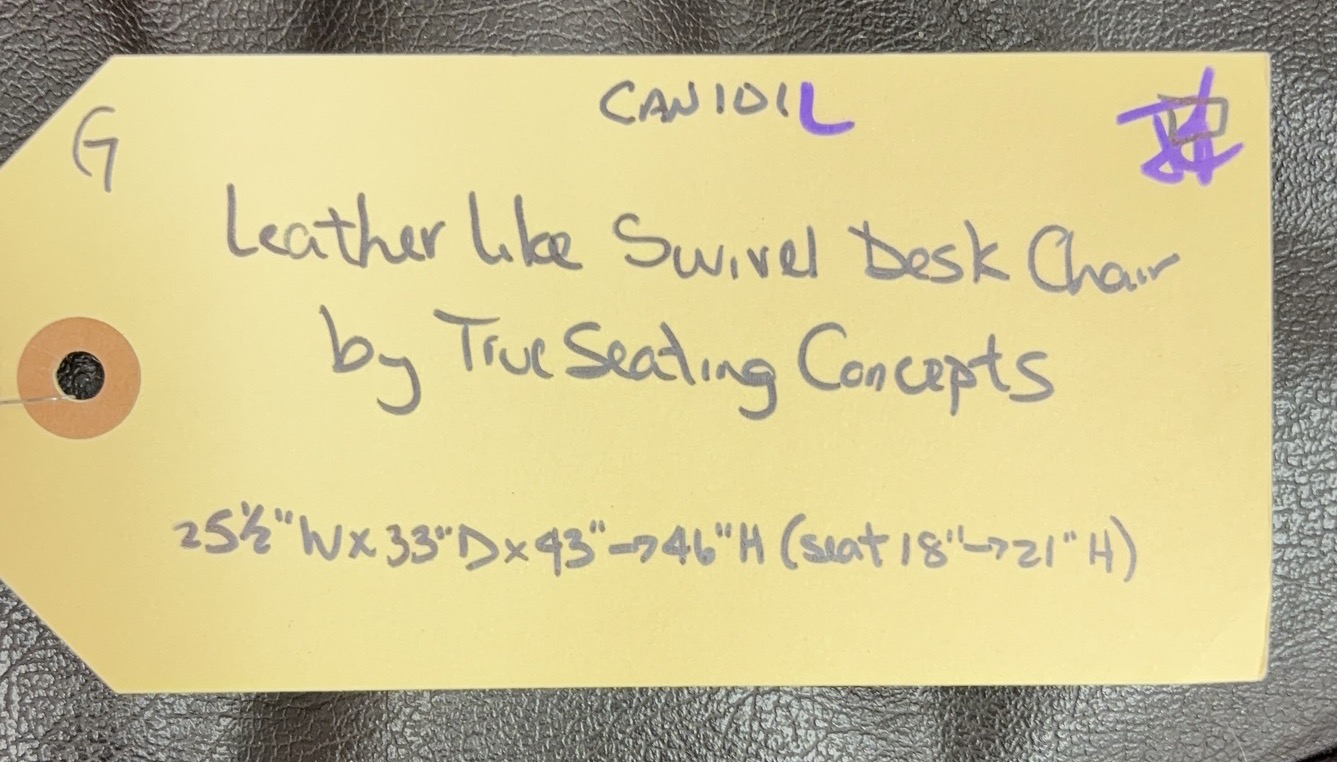 G
CAN101L
Leather like Swivel Desk Chair
by True Seating Concepts
25½" W x 33" D x 43" → 46" H (seat 18" → 21" H)